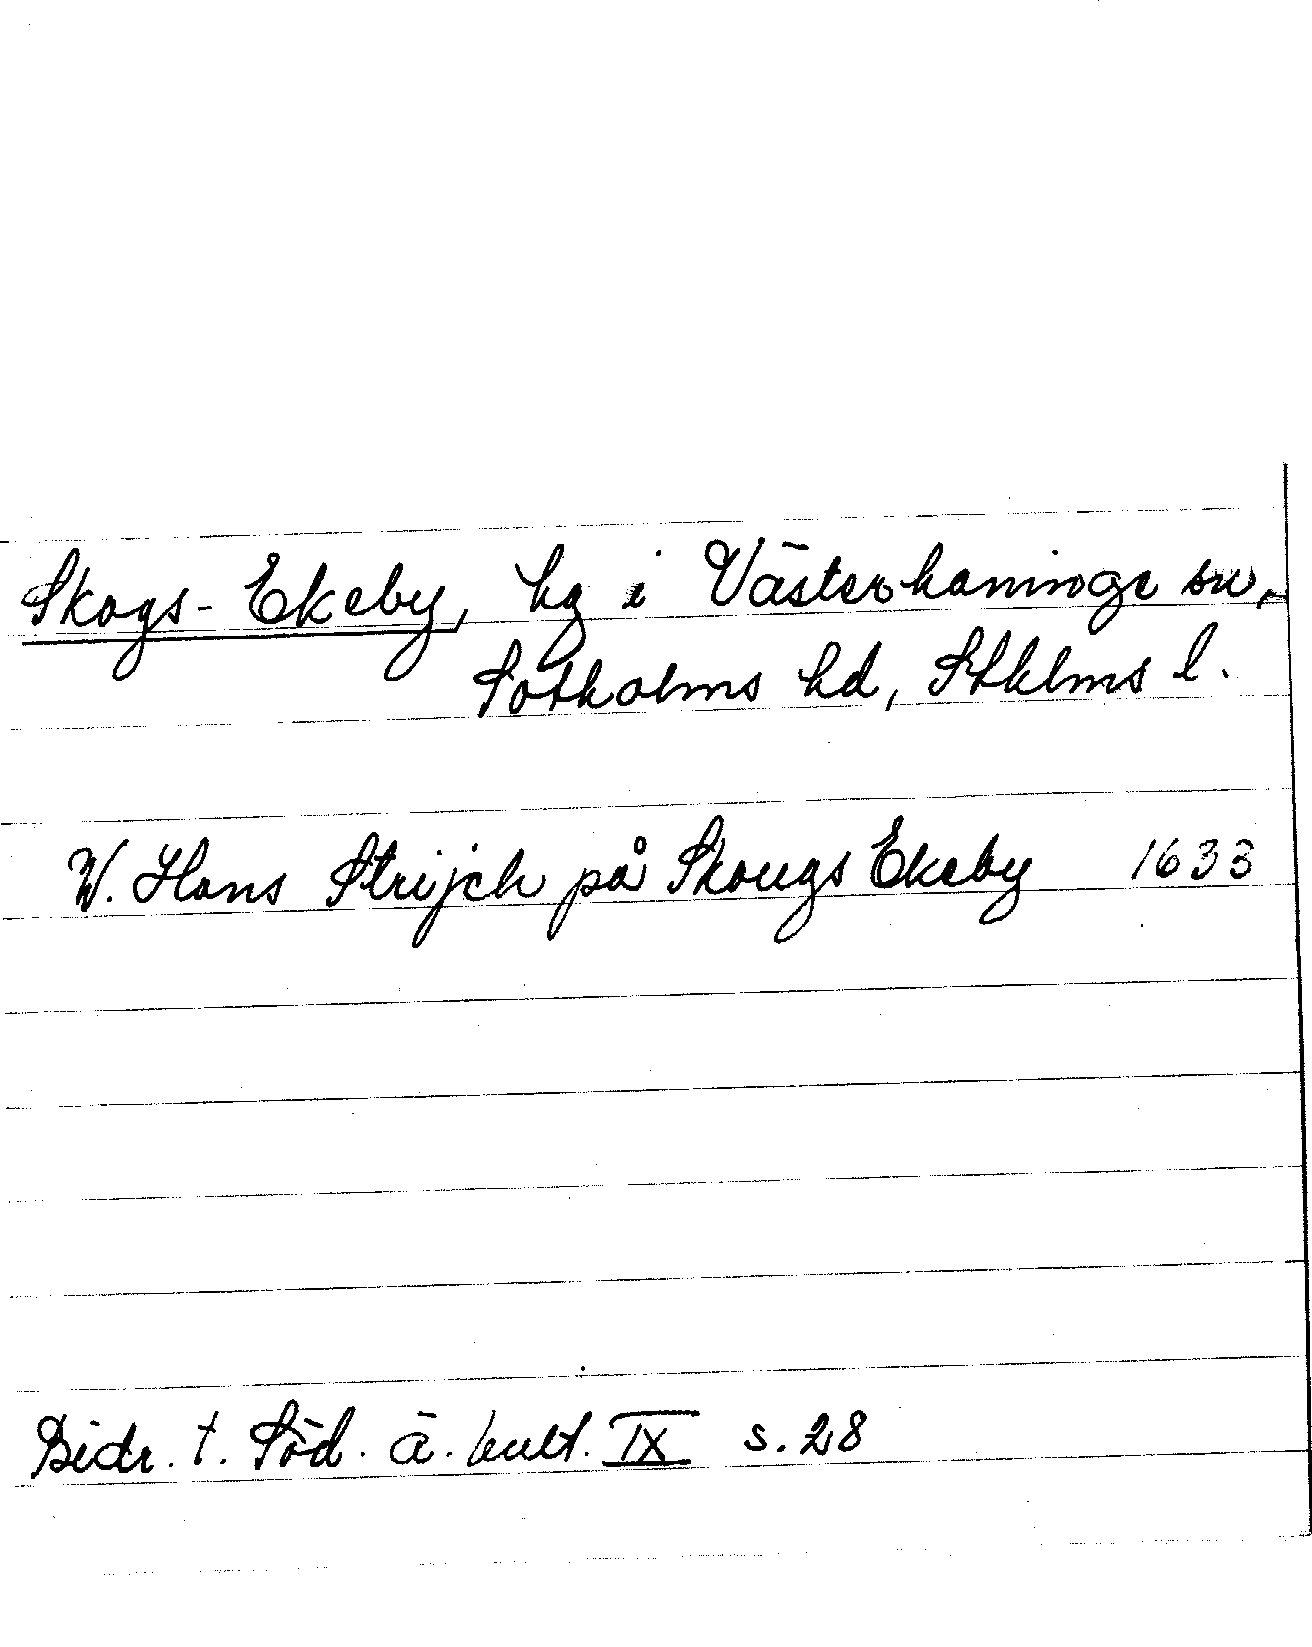 Skogs-Ekeby, hg i Västerhaninge sn,
Sotholms hd, Sthlms l.
W. Hans Strijck på Skougs Ekeby 1633
Bidr. t. Söd. ä. kult. IX s. 28